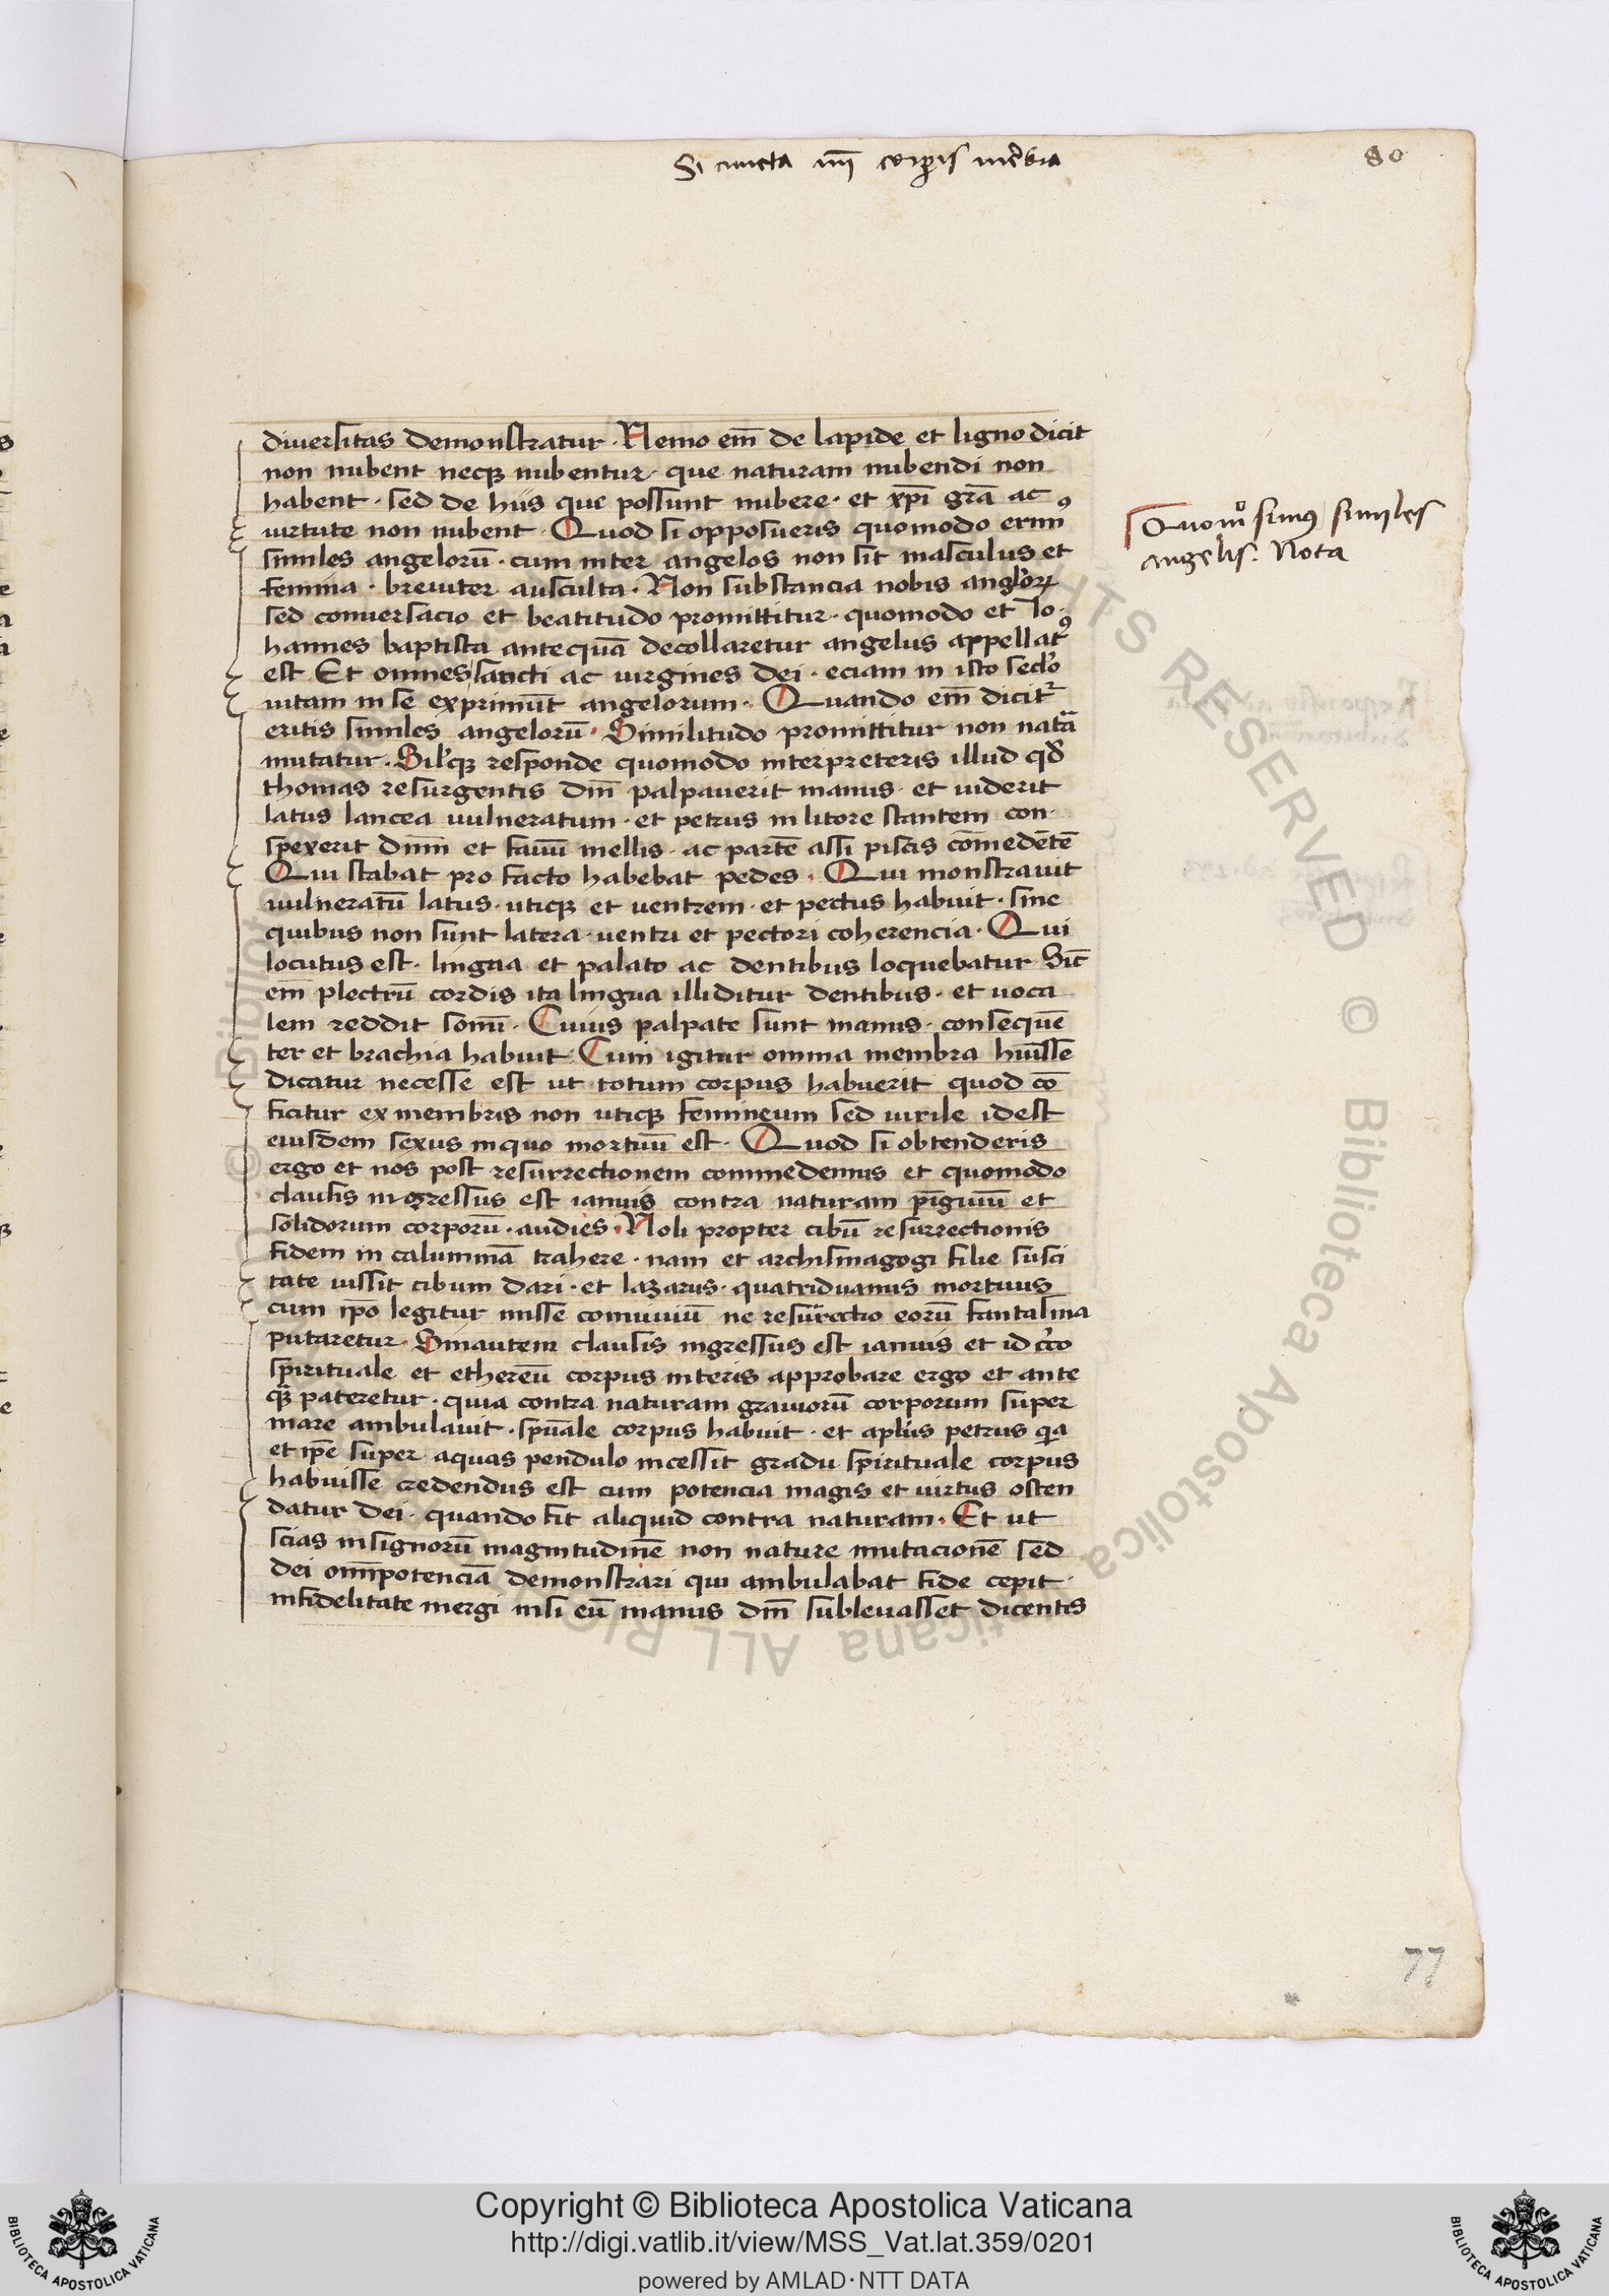 Si cuncta mī corꝑis mēbra
80
diuersitas demonstratur. Nemo em̄ de lapide et ligno dicit
non nubent necꝫ nubentur. que naturam nubendi non
habent. sed de hiis que possunt nubere. et xp̄i grā ac
uirtute non nubent. Quod si opposueris quomodo erimꝰ
similes angelorū. cum inter angelos non sit masculus et
femina. breuiter ausculta. Non substancia nobis anglorꝝ
sed conuersacio et beatitudo promittitur. quomodo et Io-
hannes baptista antequā decollaretur angelus appellatꝰ
est Et omnes sancti ac uirgines dei. eciam in isto seclo
uitam in se exprimūt angelorum. Quando em̄ dicitr
eritis similes angelorū. Similitudo promittitur non natāa
mutatur. Silcꝫ responde quomodo interpreteris illud qd
thomas resurgentis dm̄ palpauerit manus. et uiderit
latus lancea uulneratum. et petrus in litore stantem con-
spexerit dnm̄ et fauū mellis. ac partē assi piscis cōmedētē
Qui stabat pro facto habebat pedes. Qui monstrauit
uulneratū latus. uticꝫ et uentrem. et pectus habuit. sine
quibus non sunt latera. uentri et pectori coherencia. Qui
locutus est. lingua et palato ac dentibus loquebatur Sic̄
em̄ plectrū cordis ita lingua illiditur dentibus. et uoca
lem reddit sonū. Cuius palpate sunt manus. consequē
ter et brachia habuit. Cum igitur omnia membra huissē
dicatur necesse est ut totum corpus habuerit quod cō
ficitur ex membris non uticꝫ femineum sed uirile idest
eiusdem sexus inquo mortuū est. Quod si obtenderis
ergo et nos post resurrectionem commedemus et quomodo
clausis ingressus est ianuis contra naturam p̄iguiū et
solidorum corporū. audies. Noli propter cibū resurrectionis
fidem in calumniā trahere. nam et archisinagogi filie susci
tate iussit cibum dari. et lazarus. quatriduanus mortuus
cum ip̄o legitur inisse conuiuiū ne resurectio eorū fantasma
putaretur. Sinautem clausis ingressus est ianuis et id circo
spirituale et ethereū corpus interis approbare ergo et ante
qꝫ pateretur. quia contra naturam grauiorū corporum super
mare ambulauit. spūale corpus habuit. et aplūs petrus qa
et ip̄e super aquas pendulo incessit gradu spirituale corpus
habuisse credendus est cum potencia magis et uirtus osten
datur dei. quando fit aliquid contra naturam. Et ut
scias in signorū magnitudinē non nature mutacionē sed
dei omīpotenciā demonstrari qui ambulabat fide cepit.
infidelitate mergi nisi eū manus dm̄ subleuasset dicentis
Quomō simꝰ similes
angelis. Nota
77
Copyright © Biblioteca Apostolica Vaticana
http://digi.vatlib.it/view/MSS_Vat.lat.359/0201
powered by AMLAD·NTT DATA
BIBLIOTECA APOSTOLICA VATICANA
BIBLIOTECA APOSTOLICA VATICANA